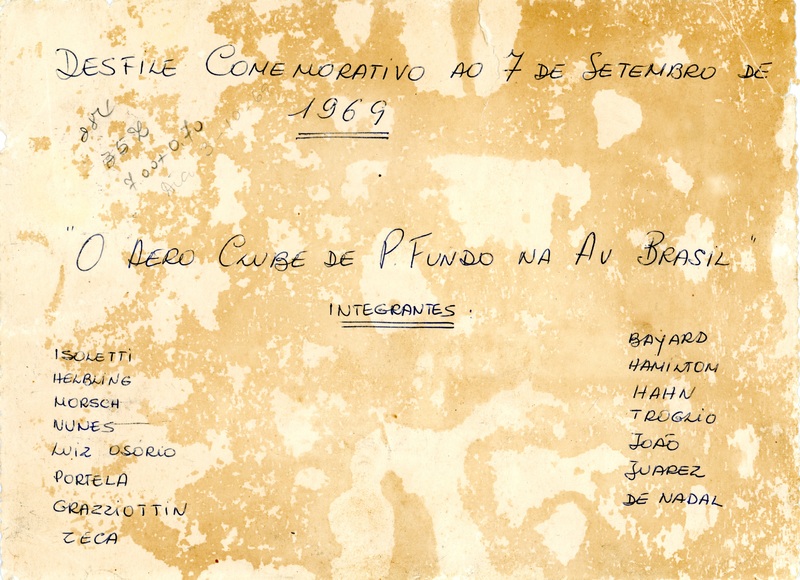 DESFILE COMEMORATIVO AO 7 DE SETEMBRO DE
1969
"O AERO CLUBE DE P. FUNDO NA AV BRASIL"
INTEGRANTES.
ISOLETTI
HELBLING
MORSCH
NUNES
LUIZ OSÓRIO
PORTELA
GRAZZIOTTIN
ZECA
BAYARD
HAMINTOM
HAHN
TROGLIO
JOÃO
JUAREZ
DE NADAL